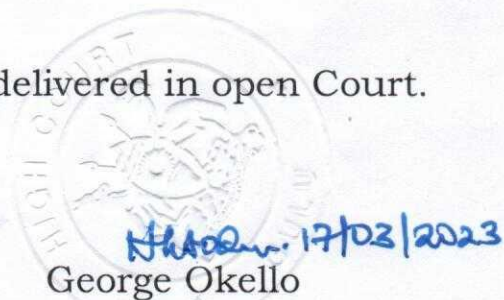 delivered in open Court.
HIGH COURT
17/03/2023
George Okello